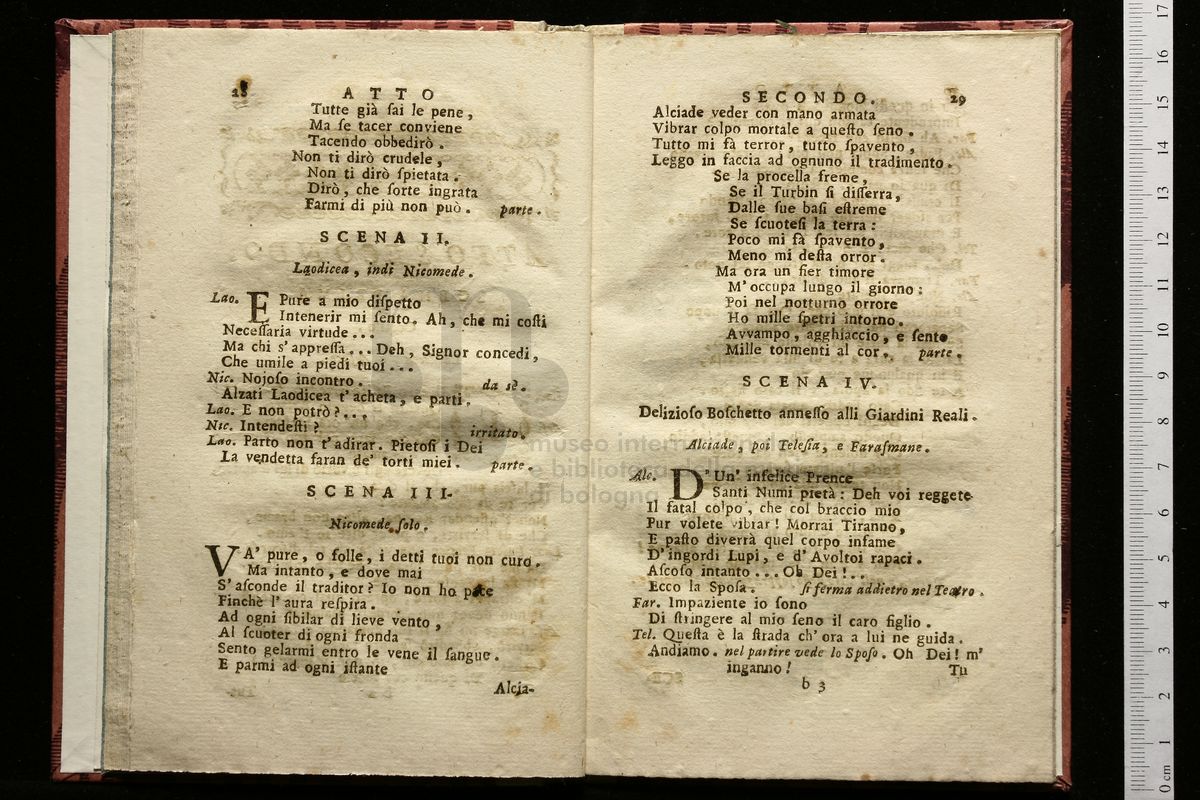 28 ATTO
Tutte già ſai le pene,
Ma ſe tacer conviene
Tacendo obbedirò.
Non ti dirò crudele,
Non ti dirò ſpietata.
Dirò, che ſorte ingrata
Farmi di più non può. parte.
SCENA II.
Laodicea, indi Nicomede.
Lao. E Pure a mio diſpetto
Intenerir mi ſento. Ah, che mi coſti
Neceſſaria virtude...
Ma chi s'appreſſa... Deh, Signor concedi,
Che umile a piedi tuoi...
Nic. Nojoſo incontro. da sè.
Alzati Laodicea t'acheta, e parti.
Lao. E non potrò?...
Nic. Intendeſti? irritato.
Lao. Parto non t'adirar. Pietoſi i Dei
La vendetta faran de' torti miei. parte.
SCENA III.
Nicomede ſolo.
VA' pure, o folle, i detti tuoi non curo.
Ma intanto, e dove mai
S'aſconde il traditor? Io non ho pace
Finchè l'aura reſpira.
Ad ogni ſibilar di lieve vento,
Al ſcuoter di ogni fronda
Sento gelarmi entro le vene il ſangue.
E parmi ad ogni iſtante
Alcia-
SECONDO. 29
Alciade veder con mano armata
Vibrar colpo mortale a queſto ſeno.
Tutto mi fà terror, tutto ſpavento,
Leggo in faccia ad ognuno il tradimento.
Se la procella freme,
Se il Turbin ſi diſſerra,
Dalle ſue baſi eſtreme
Se ſcuoteſi la terra:
Poco mi fà ſpavento,
Meno mi deſta orror.
Ma ora un fier timore
M'occupa lungo il giorno:
Poi nel notturno orrore
Ho mille ſpetri intorno.
Avvampo, agghiaccio, e ſento
Mille tormenti al cor. parte.
SCENA IV.
Delizioſo Boſchetto anneſſo alli Giardini Reali.
Alciade, poi Teleſia, e Faraſmane.
Alc. D'Un' infelice Prence
Santi Numi pietà: Deh voi reggete
Il fatal colpo, che col braccio mio
Pur volete vibrar! Morrai Tiranno,
E paſto diverrà quel corpo infame
D'ingordi Lupi, e d'Avoltoi rapaci.
Aſcoſo intanto... Oh Dei!..
Ecco la Spoſa. ſi ferma addietro nel Teatro.
Far. Impaziente io ſono
Di ſtringere al mio ſeno il caro figlio.
Tel. Queſta è la ſtrada ch'ora a lui ne guida.
Andiamo. nel partire vede lo Spoſo. Oh Dei! m'
inganno! Tu
b 3
museo internazionale
e biblioteca
di bologna
0 cm 1 2 3 4 5 6 7 8 9 10 11 12 13 14 15 16 17